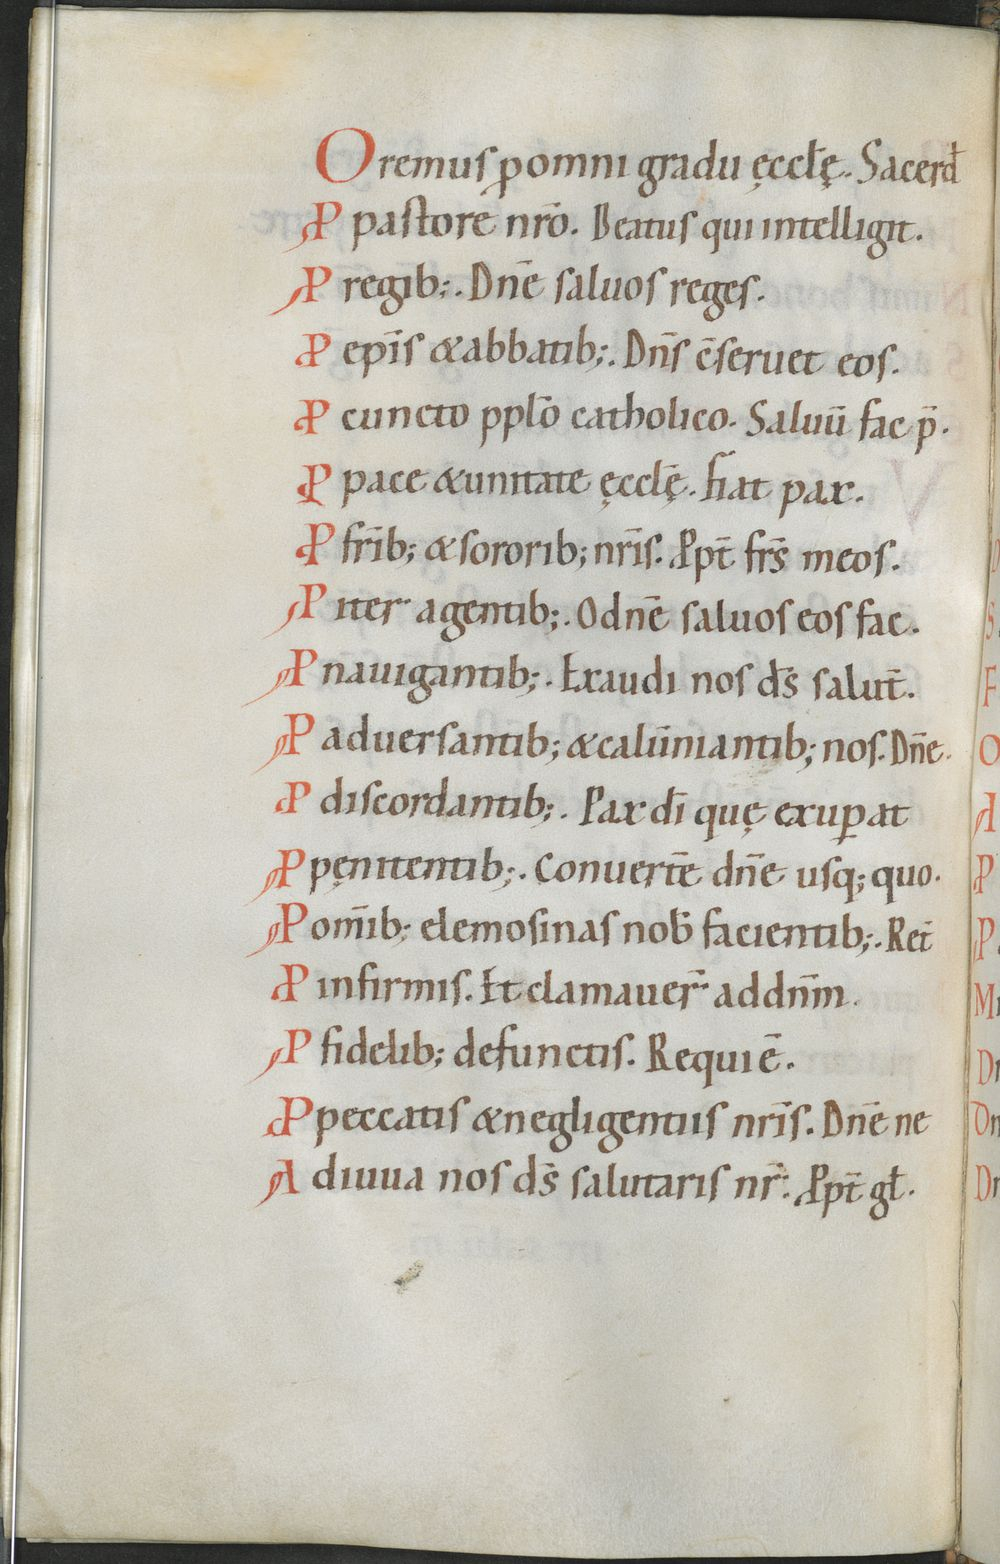 Oremus ꝓomni gradu ęccl̄ę. Sacerd̄
Ꝓ pastore nr̄o. Beatus qui intelligit.
Ꝓ regib;. Dn̄e saluos reges.
Ꝓ ep̄is &abbatib;. Dn̄s c̄seruet eos.
Ꝓ cuncto ppl̄o catholico. Saluū fac p̄.
Ꝓ pace &unitate ęccl̄ę. Fiat pax.
Ꝓ fr̄ib; &sororib; nr̄is. Ꝓpt̄ fr̄s meos.
Ꝓ iter agentib;. O dn̄e saluos eos fac.
Ꝓ nauigantib;. Exaudi nos ds̄ salut̄.
Ꝓ aduersantib; &calūniantib; nos. Dn̄e.
Ꝓ discordantib;. Pax dī quę exuꝑat
Ꝓ pęnitentib;. Conuert̄e dn̄e usq; quo.
Ꝓ om̄ib; elemosinas nob̄ facientib;. Ret̄
Ꝓ infirmis. Et clamauer̄ addn̄m.
Ꝓ fidelib; defunctis. Requiē.
Ꝓ peccatis &negligentiis nr̄is. Dn̄e ne
Adiuua nos ds̄ salutaris nr̄. Ꝓpt̄ gl̄.